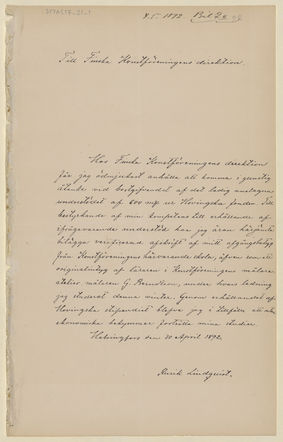 4.5. 1892. Bil 2
Till Finska Konstföreningens direktion.
Hos Finska Konstföreningens direktion
får jag ödmjukast anhålla att komma i gunstig
åtanke vid bortgifvandet af det ledig anslagna
understödet af 600 mk ur Hovingska fonden. Till
bestyrkande af min kompetens till erhållande af
ifrågavarande understöd har jag äran härjämte
bilägga verifierad afskrift af mitt afgångsbetyg
från Konstföreningens härvarande skola, äfven som ett
originalintyg af läraren i Konstföreningens målare
atelier målaren G. Berndtson, under hvars ledning
jag studerat denna vinter. Genom erhållandet af
Hovingska stipendiet blefve jag i tillfälle att utan
ekonomiska bekymmer fortsätta mina studier.
Helsingfors den 30 April 1892.
Rurik Lindqvist.